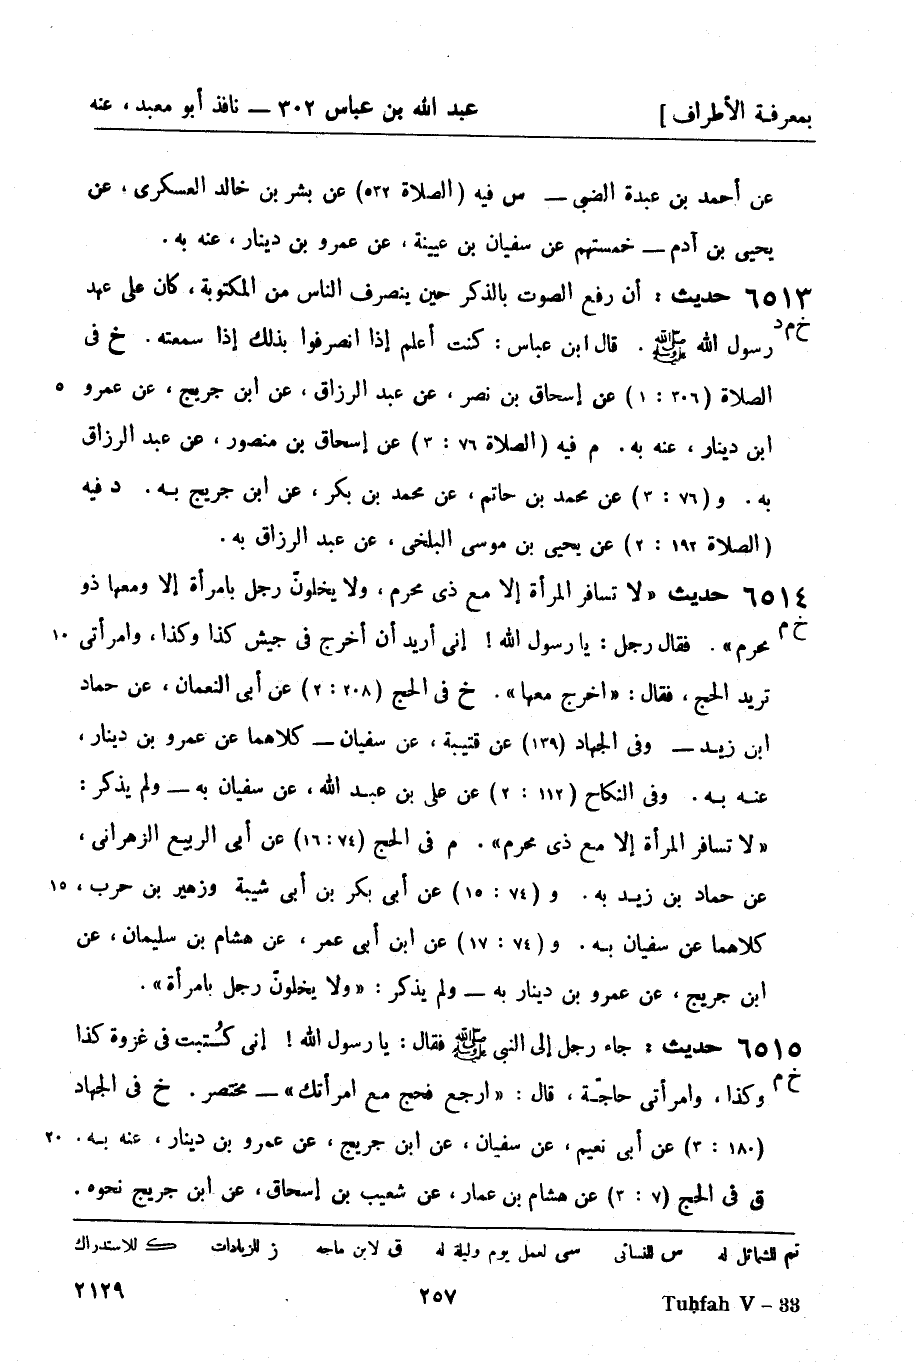 بمعرفة الأطراف ] عبد الله بن عباس ٣٠٢ — نافذ أبو معبد ، عنه
عن أحمد بن عبدة الضبى — س فيه (الصلاة ٥٣٢) عن بشر بن خالد العسكرى ، عن
يحيى بن آدم — خمستهم عن سفيان بن عيينة ، عن عمرو بن دينار ، عنه به .
٦٥١٣ حديث : أن رفع الصوت بالذكر حين ينصرف الناس من المكتوبة ، كان على عهد
خ م د
رسول الله ﷺ . قال ابن عباس : كنت أعلم إذا انصرفوا بذلك إذا سمعته . خ فى
الصلاة (٣٠٦ : ١) عن إسحاق بن نصر ، عن عبد الرزاق ، عن ابن جريج ، عن عمرو ٥
ابن دينار ، عنه به . م فيه (الصلاة ٧٦ : ٣) عن إسحاق بن منصور ، عن عبد الرزاق
به . و (٧٦ : ٣) عن محمد بن حاتم ، عن محمد بن بكر ، عن ابن جريج به . د فيه
(الصلاة ١٩٢ : ٢) عن يحيى بن موسى البلخى ، عن عبد الرزاق به .
٦٥١٤ حديث «لا تسافر المرأة إلا مع ذى محرم ، ولا يخلونّ رجل بامرأة إلا ومعها ذو
خ م
محرم» . فقال رجل : يا رسول الله ! إنى أريد أن أخرج فى جيش كذا وكذا ، وامرأتى ١٠
تريد الحج ، فقال : «اخرج معها» . خ فى الحج (٢٠٨ : ٢) عن أبى النعمان ، عن حماد
ابن زيد — وفى الجهاد (١٣٩) عن قتيبة ، عن سفيان — كلاهما عن عمرو بن دينار ،
عنه به . وفى النكاح (١١٢ : ٢) عن على بن عبد الله ، عن سفيان به — ولم يذكر :
«لا تسافر المرأة إلا مع ذى محرم» . م فى الحج (٧٤ : ١٦) عن أبى الربيع الزهرانى ،
عن حماد بن زيد به . و (٧٤ : ١٥) عن أبى بكر بن أبى شيبة وزهير بن حرب ، ١٥
كلاهما عن سفيان به . و (٧٤ : ١٧) عن ابن أبى عمر ، عن هشام بن سليمان ، عن
ابن جريج ، عن عمرو بن دينار به — ولم يذكر : «ولا يخلونّ رجل بامرأة» .
٦٥١٥ حديث : جاء رجل إلى النبى ﷺ فقال : يا رسول الله ! إنى كُتبت فى غزوة كذا
خ م
وكذا ، وامرأتى حاجّة ، قال : «ارجع فحج مع امرأتك» — مختصر . خ فى الجهاد
(١٨٠ : ٣) عن أبى نعيم ، عن سفيان ، عن ابن جريج ، عن عمرو بن دينار ، عنه به . ٢٠
ق فى الحج (٧ : ٣) عن هشام بن عمار ، عن شعيب بن إسحاق ، عن ابن جريج نحوه .
تم للشمائل له س للنسائى سى لعمل يوم وليلة له ق لابن ماجه ز للزيادات ك للاستدراك
Tuḥfah V – 33 ٢٥٧ ٢١٢٩